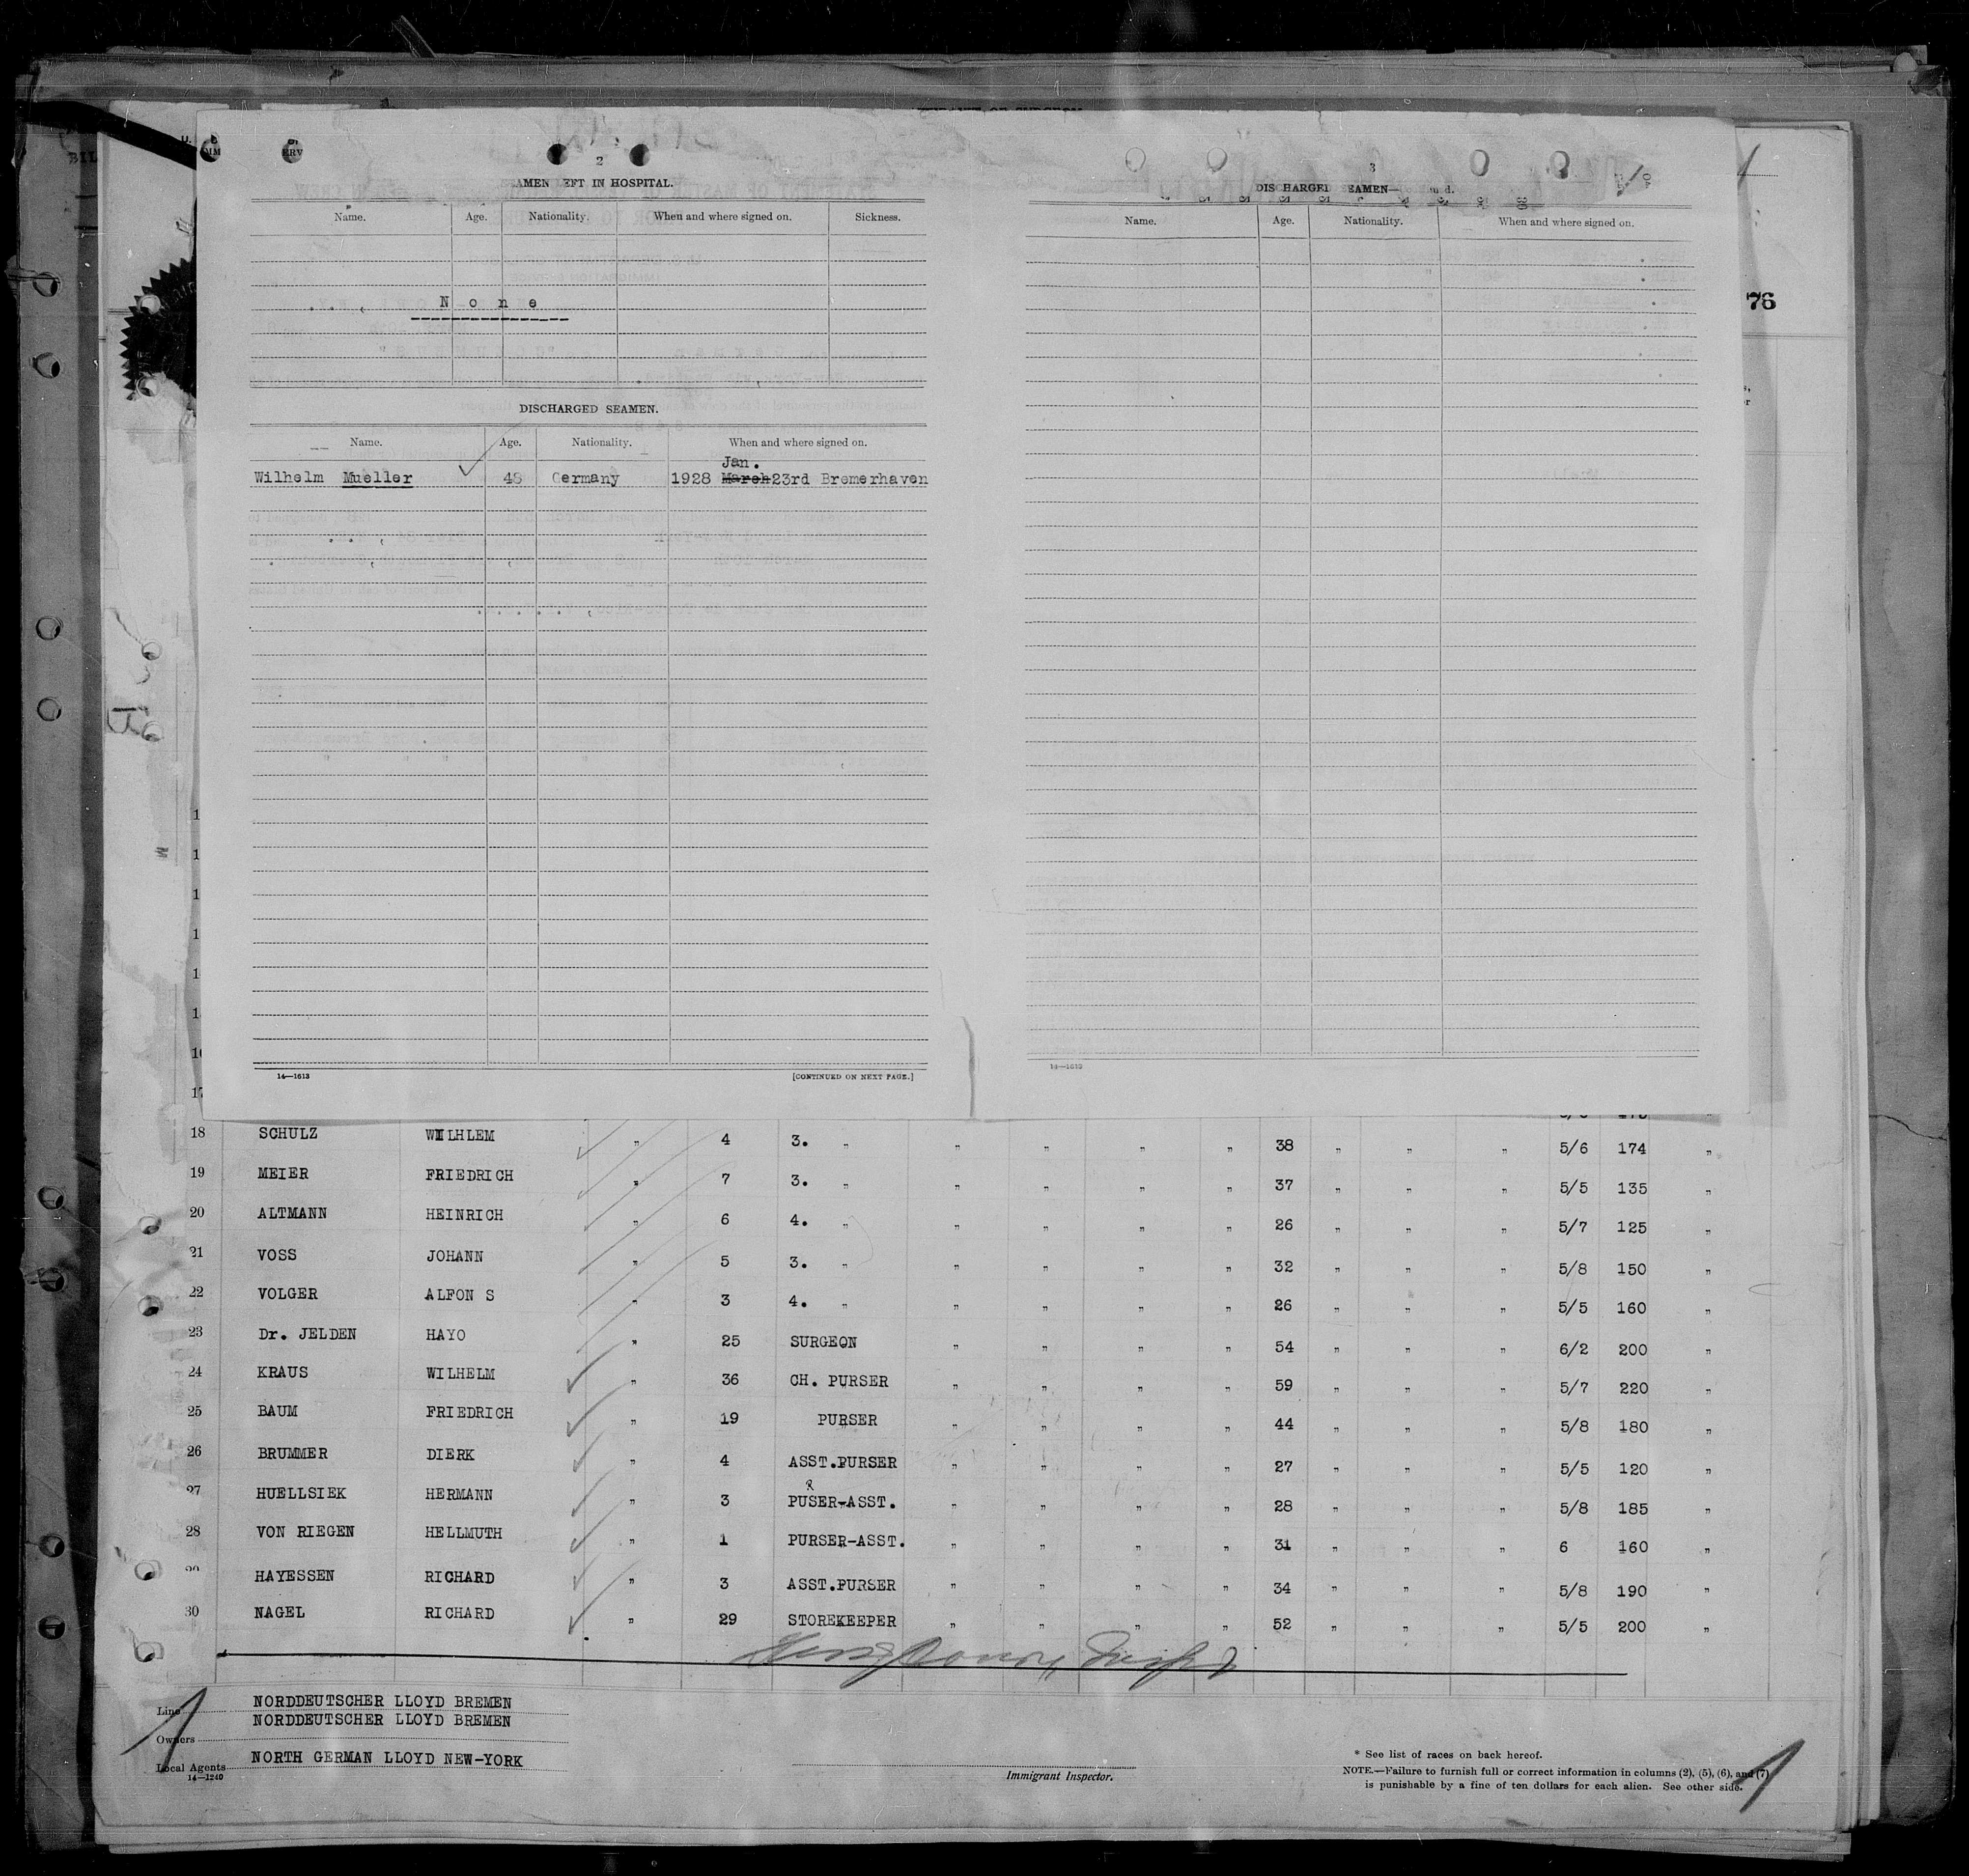 2
AMEN EFT IN HOSPITAL.
Name. Age. Nationality. When and where signed on. Sickness.
N o n e
DISCHARGED SEAMEN.
Name. Age. Nationality. When and where signed on.
Jan.
Wilhelm Mueller 48 Germany 1928 March 23rd Bremerhaven
14—1613 [CONTINUED ON NEXT PAGE.]
3
DISCHARGED EAMEN—
Name. Age. Nationality. When and where signed on.
76
18 SCHULZ WILHLEM " 4 3. " " " " " 38 " " " 5/6 174 "
19 MEIER FRIEDRICH " 7 3. " " " " " 37 " " " 5/5 135 "
20 ALTMANN HEINRICH " 6 4. " " " " " 26 " " " 5/7 125 "
21 VOSS JOHANN " 5 3. " " " " " 32 " " " 5/8 150 "
22 VOLGER ALFON S " 3 4. " " " " " 26 " " " 5/5 160 "
23 Dr. JELDEN HAYO " 25 SURGEON " " " " 54 " " " 6/2 200 "
24 KRAUS WILHELM " 36 CH. PURSER " " " " 59 " " " 5/7 220 "
25 BAUM FRIEDRICH " 19 PURSER " " " " 44 " " " 5/8 180 "
26 BRUMMER DIERK " 4 ASST.PURSER " " " " 27 " " " 5/5 120 "
R
27 HUELLSIEK HERMANN " 3 PUSER-ASST. " " " " 28 " " " 5/8 185 "
28 VON RIEGEN HELLMUTH " 1 PURSER-ASST. " " " " 31 " " " 6 160 "
HAYESSEN RICHARD " 3 ASST.PURSER " " " " 34 " " " 5/8 190 "
30 NAGEL RICHARD " 29 STOREKEEPER " " " " 52 " " " 5/5 200 "
Line NORDDEUTSCHER LLOYD BREMEN
Owners NORDDEUTSCHER LLOYD BREMEN
Local Agents NORTH GERMAN LLOYD NEW-YORK
14—1240
Immigrant Inspector.
* See list of races on back hereof.
NOTE.—Failure to furnish full or correct information in columns (2), (5), (6), and (7)
is punishable by a fine of ten dollars for each alien. See other side.